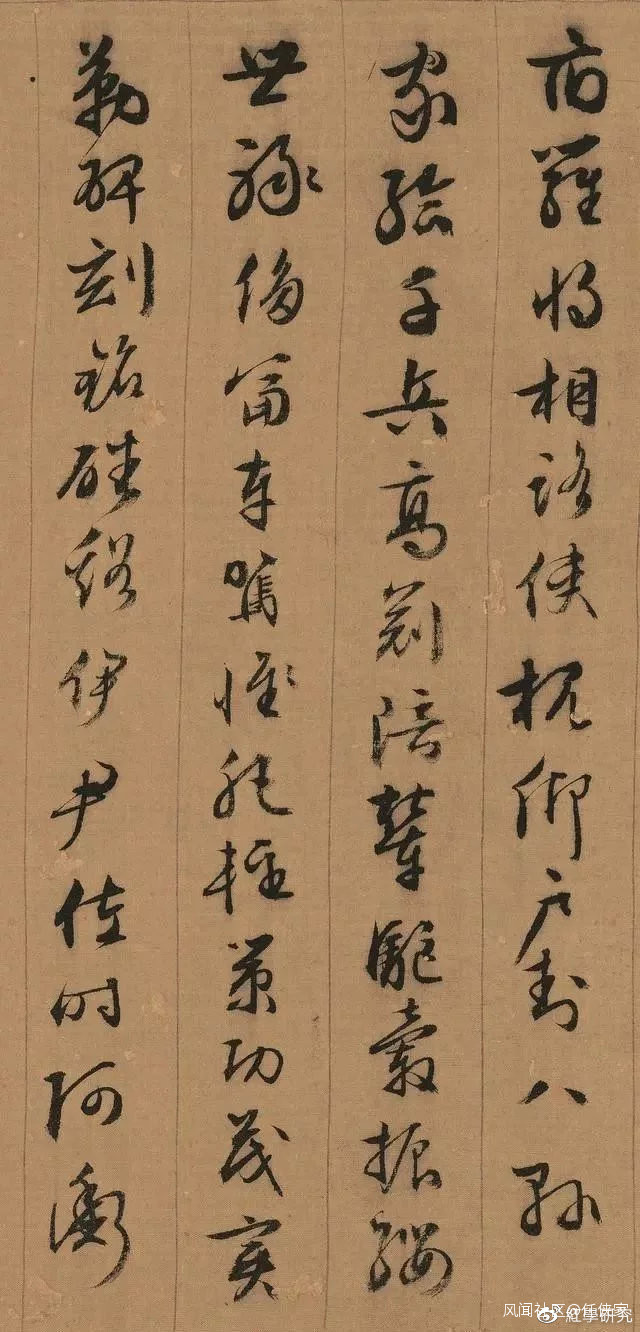 府羅將相路俠槐卿戶封八縣
家給千兵高冠陪輦驅轂振纓
世祿侈富車駕惟肥輕策功茂實
勒碑刻銘磻谿伊尹佐時阿衡
风闻社区@任侠
@紅學研究